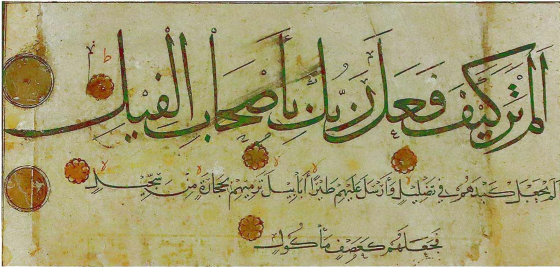 ألم تر كيف فعل ربك بأصحاب الفيل
ألم يجعل كيدهم في تضليل وأرسل عليهم طيرا أبابيل ترميهم بحجارة من سجيل
فجعلهم كعصف مأكول